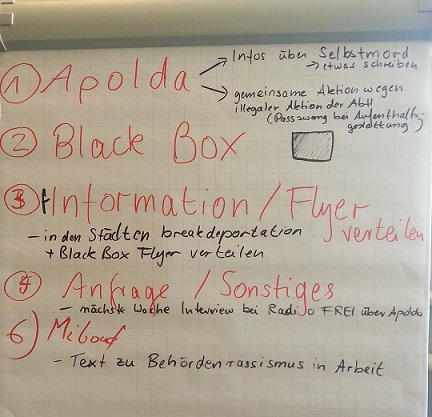 ① Apolda
Infos über Selbstmord
→ etwas schreiben
gemeinsame Aktion wegen
illegaler Aktion der AbH
(Passzwang bei Aufenthalts-
gestattung)
② Black Box
③ Information / Flyer
verteilen
- in den Städten breakdeportation
+ Black Box Flyer verteilen
Anfrage / Sonstiges
- nächste Woche Interview bei Radio FREI über Apolda
6)
- Text zu Behördenrassismus in Arbeit